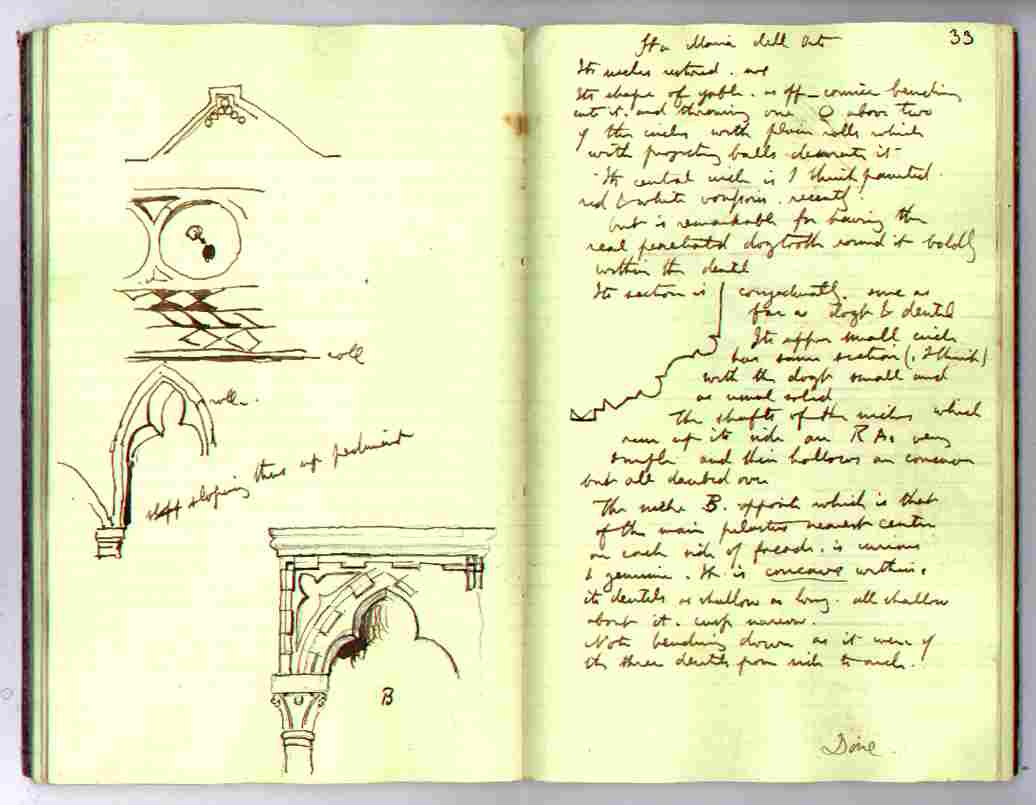 roll
roll.
sloping thus up pediment
B
33
Sta Maria dell Orto
Its niches restored. are
Its shape of gable. as off cornice bending
into it. and throwing one O above two
of the circles with plain rolls which
with projecting balls decorate it
Its central circle is I think painted
red & white voussoirs. recently.
but is remarkable for having the
real penetrated dogtooth round it boldly
within the dentil
Its section is consequently. same as
far as dogt & dentil
Its upper small circle
has same section (. I think)
with the dogt small and
as usual solid
The shafts of the niches which
run up its side are very
simple and their hollows are concave
but all dentiled over
The niche B. opposite which is that
of the main pilaster nearest center
on each side of facade. is curious
& genuine. It is concave within.
its dentils as shallow as long. all shallow
about it. cusp narrow.
Note bending down as it were of
the three dentils from side to arch.
Done.